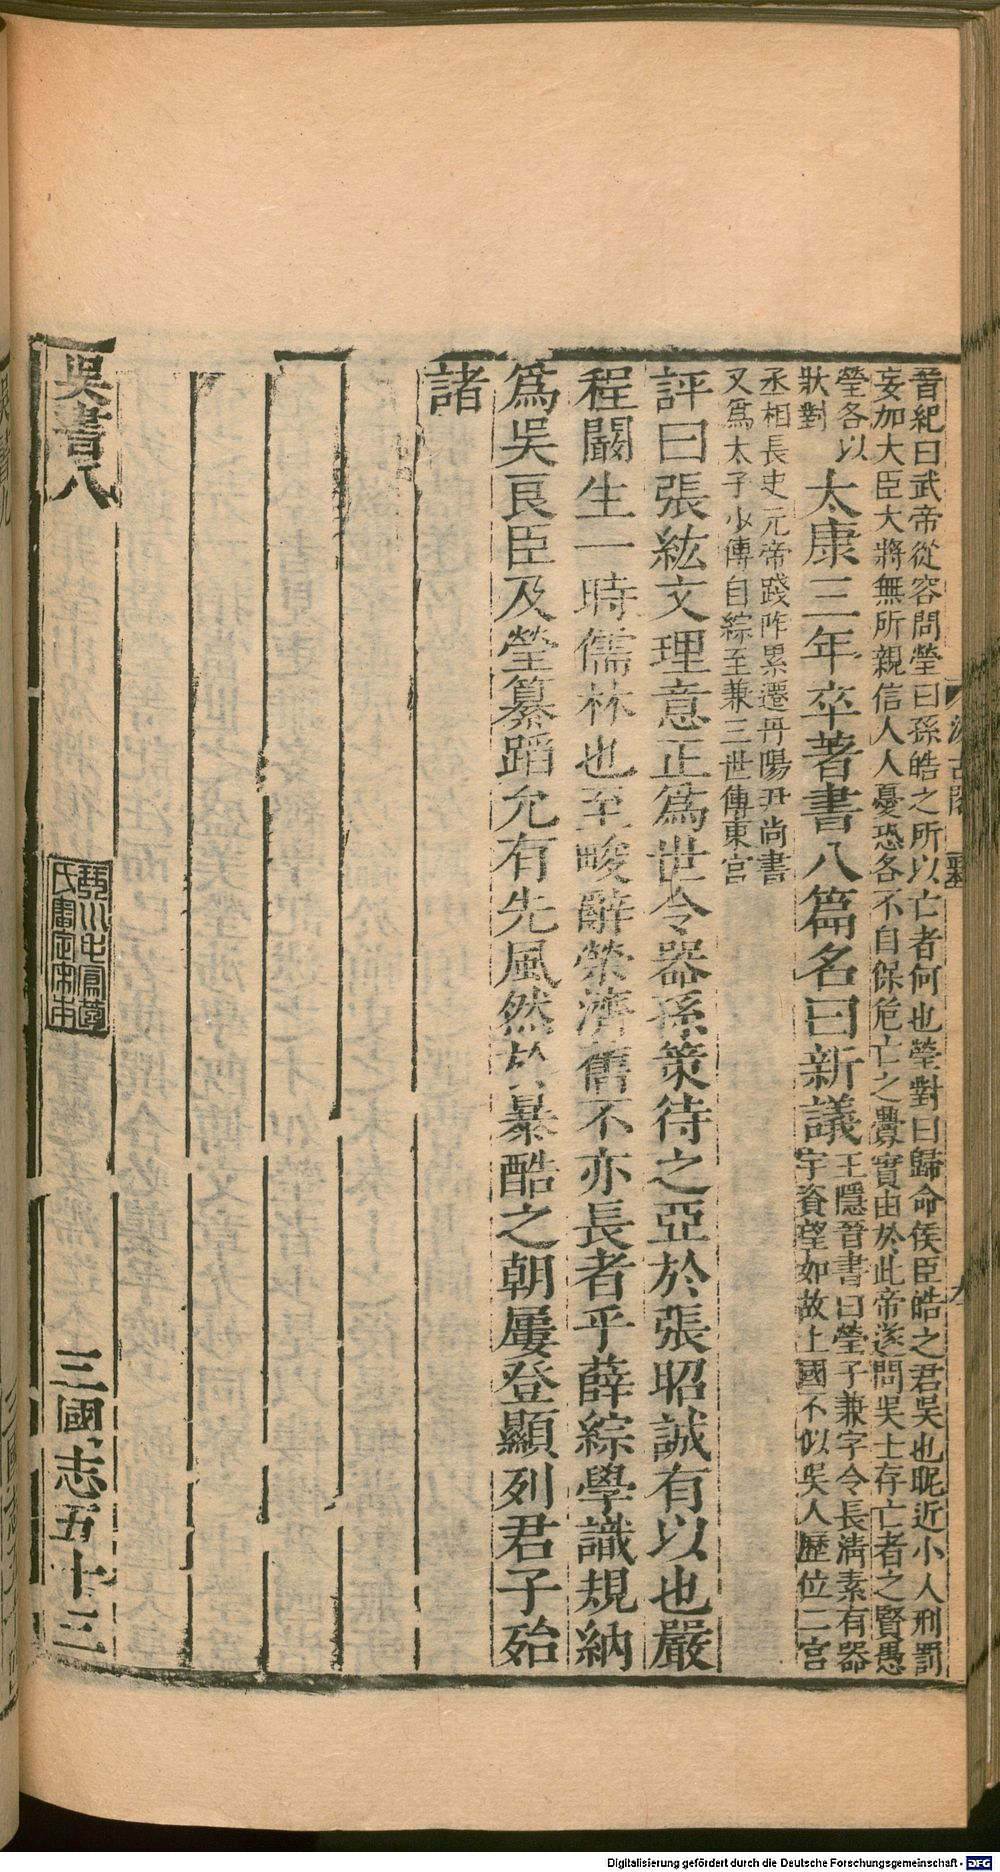 晉紀曰武帝從容問瑩曰孫皓之所以亡者何也瑩對曰歸命侯臣皓之君吳也昵近小人刑罰
妄加大臣大將無所親信人人憂恐各不自保危亡之釁實由於此帝遂問吳士存亡者之賢愚
瑩各以
狀對
太康三年卒著書八篇名曰新議
王隱晉書曰瑩子兼字令長淸素有器
宇資望如故上國不似吳人歷位二宮
丞相長史元帝踐阼累遷丹陽尹尚書
又爲太子少傅自綜至兼三世傅東宮
評曰張紘文理意正爲世令器孫策待之亞於張昭誠有以也嚴
程闞生一時儒林也至畯辭榮濟舊不亦長者乎薛綜學識規納
爲吳良臣及瑩纂蹈允有先風然於暴酷之朝屢登顯列君子殆
諸
吳書八
琴川毛鳳苞
氏審定宋本
三國志五十三
Digitalisierung gefördert durch die Deutsche Forschungsgemeinschaft - DFG